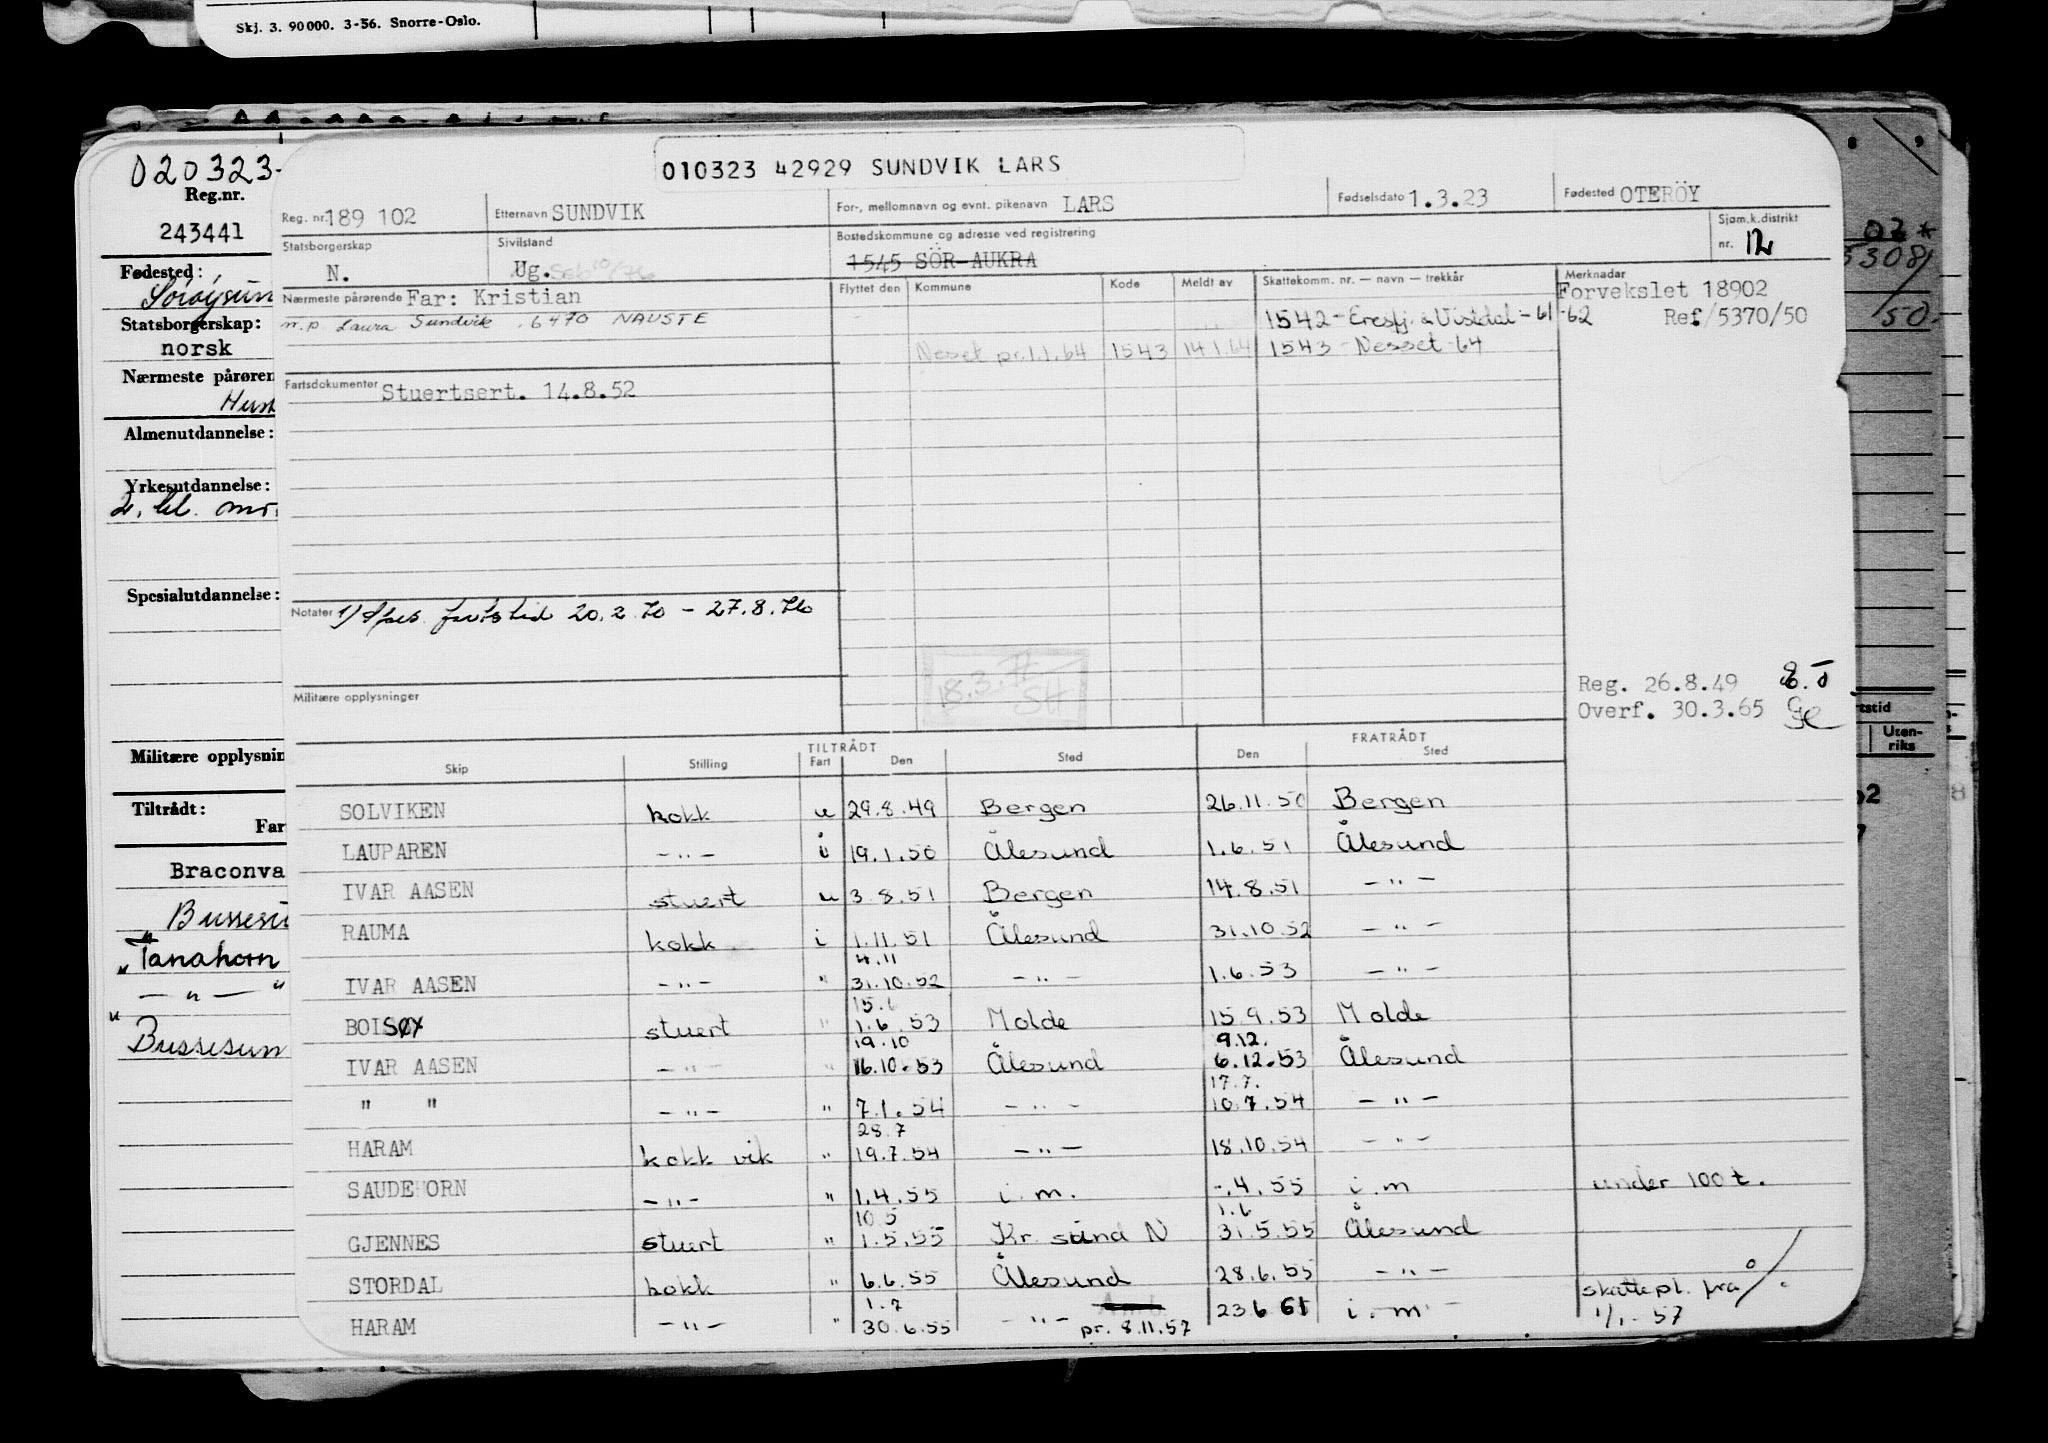 Skj. 3. 90000. 3-56. Snorre-Oslo.
020323-
Reg.nr.
243441
Fødested:
Sørøysun
Statsborgerskap:
norsk
Nærmeste pårøren
Almenutdannelse:
Yrkesutdannelse:
Spesialutdannelse:
Militære opplysnin
Tiltrådt:
Far
Braconva
Bussesu
" Tanahorn
— " — "
" Bussesun
010323 42929 SUNDVIK LARS
Reg. nr. 189 102 Etternavn SUNDVIK For-, mellomnavn og evnt. pikenavn LARS Fødselsdato 1.3.23 Fødested OTERÖY
Statsborgerskap N. Sivilstand Ug. Bostedskommune og adresse ved registrering 1545 SÖR-AUKRA Sjøm.k.distrikt nr. 12
Nærmeste pårørende Far: Kristian Flyttet den Kommune Kode Meldt av Skattekomm. nr. — navn — trekkår Merknadar Forvekslet 18902
m.p. Laura Sundvik, 6470 NAUSTE 1542 - Eresfj. & Vistdal - 61-62 Ref/5370/50
Neset pr. 1.1.64 1543 14.1.64 1543 - Nesset - 64
Fartsdokumenter Stuertsert. 14.8.52
Notater 1) fartstid 20.2.70 - 27.8.76
18.3.77
SH
Militære opplysninger
Reg. 26.8.49
Overf. 30.3.65
Skip Stilling TILTRÅDT Fart Den Sted FRATRÅDT Den Sted
SOLVIKEN kokk u 29.8.49 Bergen 26.11.50 Bergen
LAUPAREN — " — i 19.1.50 Ålesund 1.6.51 Ålesund
IVAR AASEN stuert u 3.8.51 Bergen 14.8.51 — " —
RAUMA kokk i 1.11.51 Ålesund 31.10.52 — " —
4.11
IVAR AASEN — " — " 31.10.52 — " — 1.6.53 — " —
BOISØY stuert " 1.6.53 Molde 15.9.53 Molde
19.10 9.12.
IVAR AASEN — " — " 16.10.53 Ålesund 6.12.53 Ålesund
17.7.
" " — " — " 7.1.54 — " — 10.7.54 — " —
28.7
HARAM kokk vik " 19.7.54 — " — 18.10.54 — " —
SAUDEHORN — " — " 1.4.55 i.m. -.4.55 i.m under 100 t.
10.5 1.6
GJENNES stuert " 1.5.55 Kr. sund N 31.5.55 Ålesund
STORDAL kokk " 6.6.55 Ålesund 28.6.55 — " —
1.7
HARAM — " — " 30.6.55 — " — pr. 8.11.57 23 6 61 i.m skattepl. frå
1/1 - 57
5308
50.
tstid
Uten-
riks